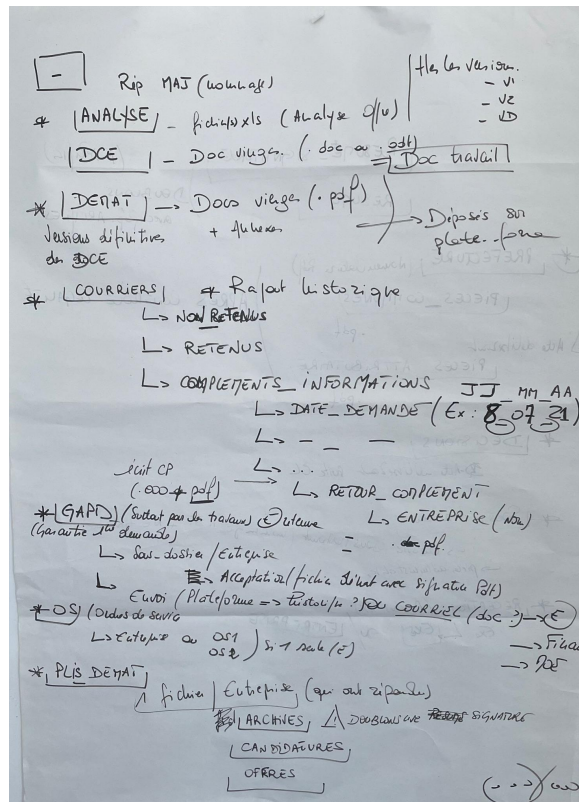 - Rép MAJ (nommage)
Ttes les versions.
- V1
- V2
- VD
* ANALYSE - fichier(s) xls (Analyse Off/u)
DCE - Doc vierges (.doc ou .odt)
= Doc travail
* DEMAT → Docs vierges (.pdf)
Versions définitives + Annexes
des DCE
→ Déposés sur
plate-forme
* COURRIERS * Rajout historique
↳ NON RETENUS
↳ RETENUS
↳ COMPLEMENTS_INFORMATIONS
JJ_MM_AA
↳ DATE_DEMANDE (Ex: 8_07_21)
↳ - - -
↳ ...
écrit CP
(.000 + pdf) → ↳ RETOUR_COMPLEMENT
↳ ENTREPRISE (Nou)
= .pdf.
* GAPD (Surtout pour les travaux) E
(Garantie 1ère demande)
↳ Sous-dossier / Entreprise
↳ Acceptation / fichier avec signature Pdf)
Envoi (Plateforme => ?) ou COURRIEL (doc ?) → E
* OS (Ordres de service)
↳ Entreprise ou OS1
OS2 ) Si 1 seule (E)
→
→ DOE
* PLIS DEMAT
1 fichier / Entreprise (qui ont répondu)
ARCHIVES ⚠ DOUBLONS AVEC SIGNATURE
CANDIDATURES
OFFRES
(...)